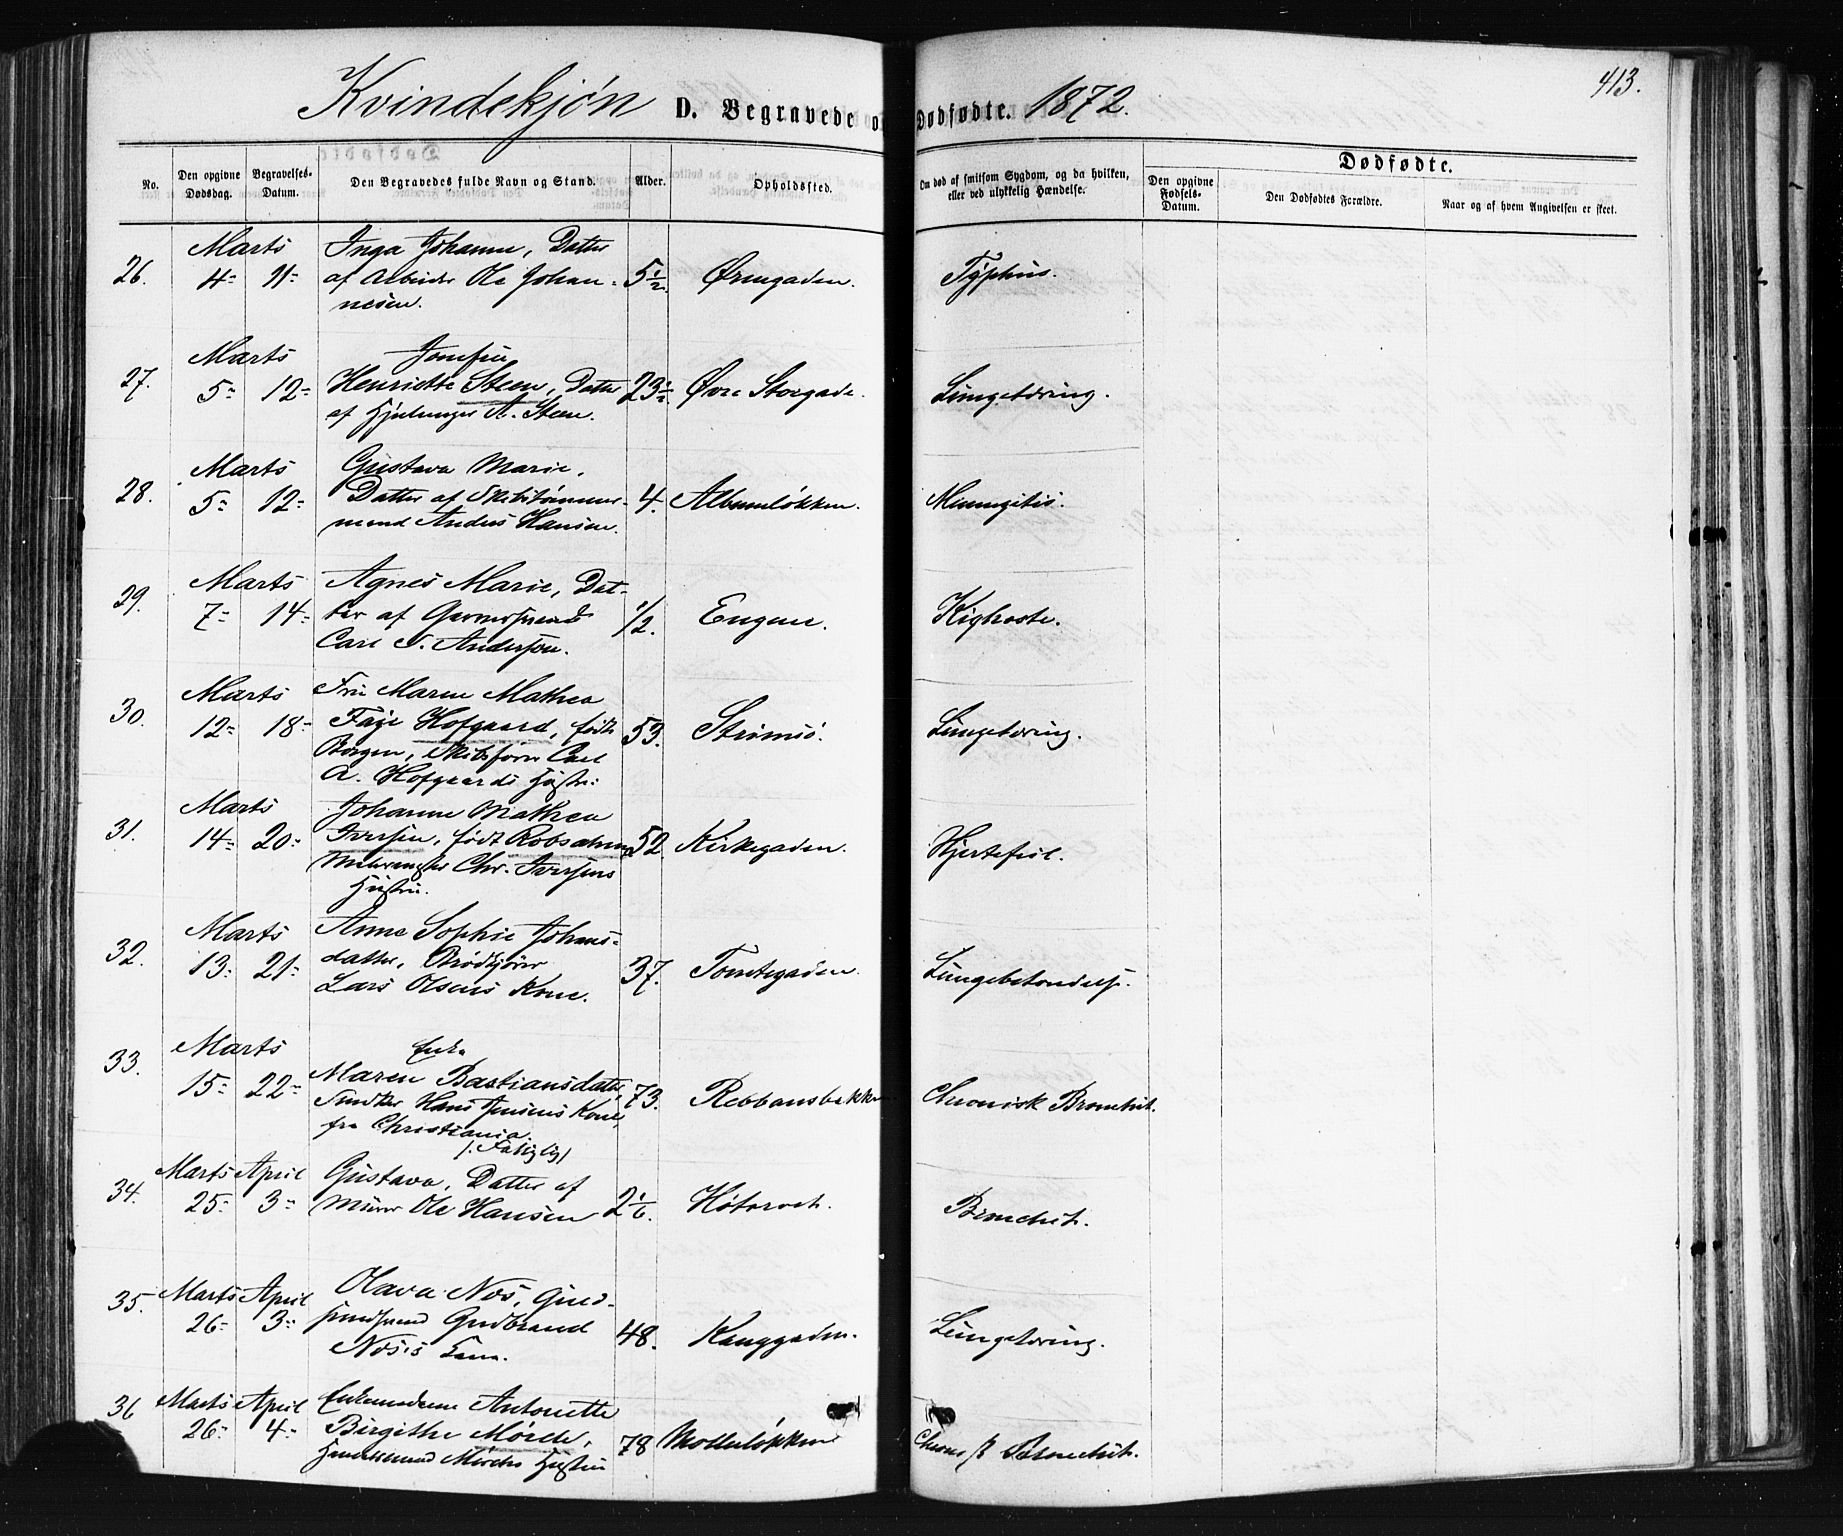 413.
Kvindekjøn D. Begravede og Dødfødte. 1872.
No. Den opgivne Dødsdag. Begravelses-Datum. Den Begravedes fulde Navn og Stand. Alder. Opholdssted. Om død af smitsom Sygdom, og da hvilken, eller ved ulykkelig Hændelse. Dødfødte.
Den opgivne Fødsels-Datum. Den Dødfødtes Forældre. Naar og af hvem Angivelsen er skeet.
Marts Inga Johanne, Datter
26. 4 11 af Arbeider Ole Johan- 5½ Ørengaden. Typhus.
nesen.
Marts Josefine
27. 5 12 Henriette Steen, Datter 23½ Øvre Storgade. Lungetæring.
af A. Steen.
Marts Gustava Marie,
28. 5 12 Datter af Skibstømmer- 4. Meningitis.
mand Anders Hansen.
Marts Agnes Marie, Dat-
29. 7 14 ter af Garversvend ½. Engene. Kighoste.
Carl J. Andersen.
Marts Fru Maren Mathea
30. 12 18 Faye Hofgaard, født 53. Strømsö. Lungetæring.
Borgen, Skibsfører Carl
A. Hofgaards Hustru.
Marts Johanne Mathea
31. 14 20 Iversen, født Robsahm 52. Kirkegaden. Hjertefeil.
Chr. Iversens
Hustru.
Marts Anne Sophie Johans-
32. 13 21 datter, Brødkjører 37. Tomtegaden. Lungebetændelse.
Lars Olsens Kone.
Marts Enke
33. 15 22 Maren Bastiansdatter, 73. Rebbansbakken Chronisk Bronchit.
Hans Jensens Kone
fra Christiania.
(Fattiglig)
Marts April Gustava, Datter af
34. 25 3 Murer Ole Hansen 2 1/6. Høtorvet. Bronchit.
Marts April Olava Nøs, Guld-
35. 26 3 smedsvend Gudbrand 48. Konggaden. Lungetæring.
Nøs's Kone.
Marts April Enkemadame Antonette
36 26 4 Birgithe Mörch, 78 Møllerløkken Bronchit.
Mörchs Hustru